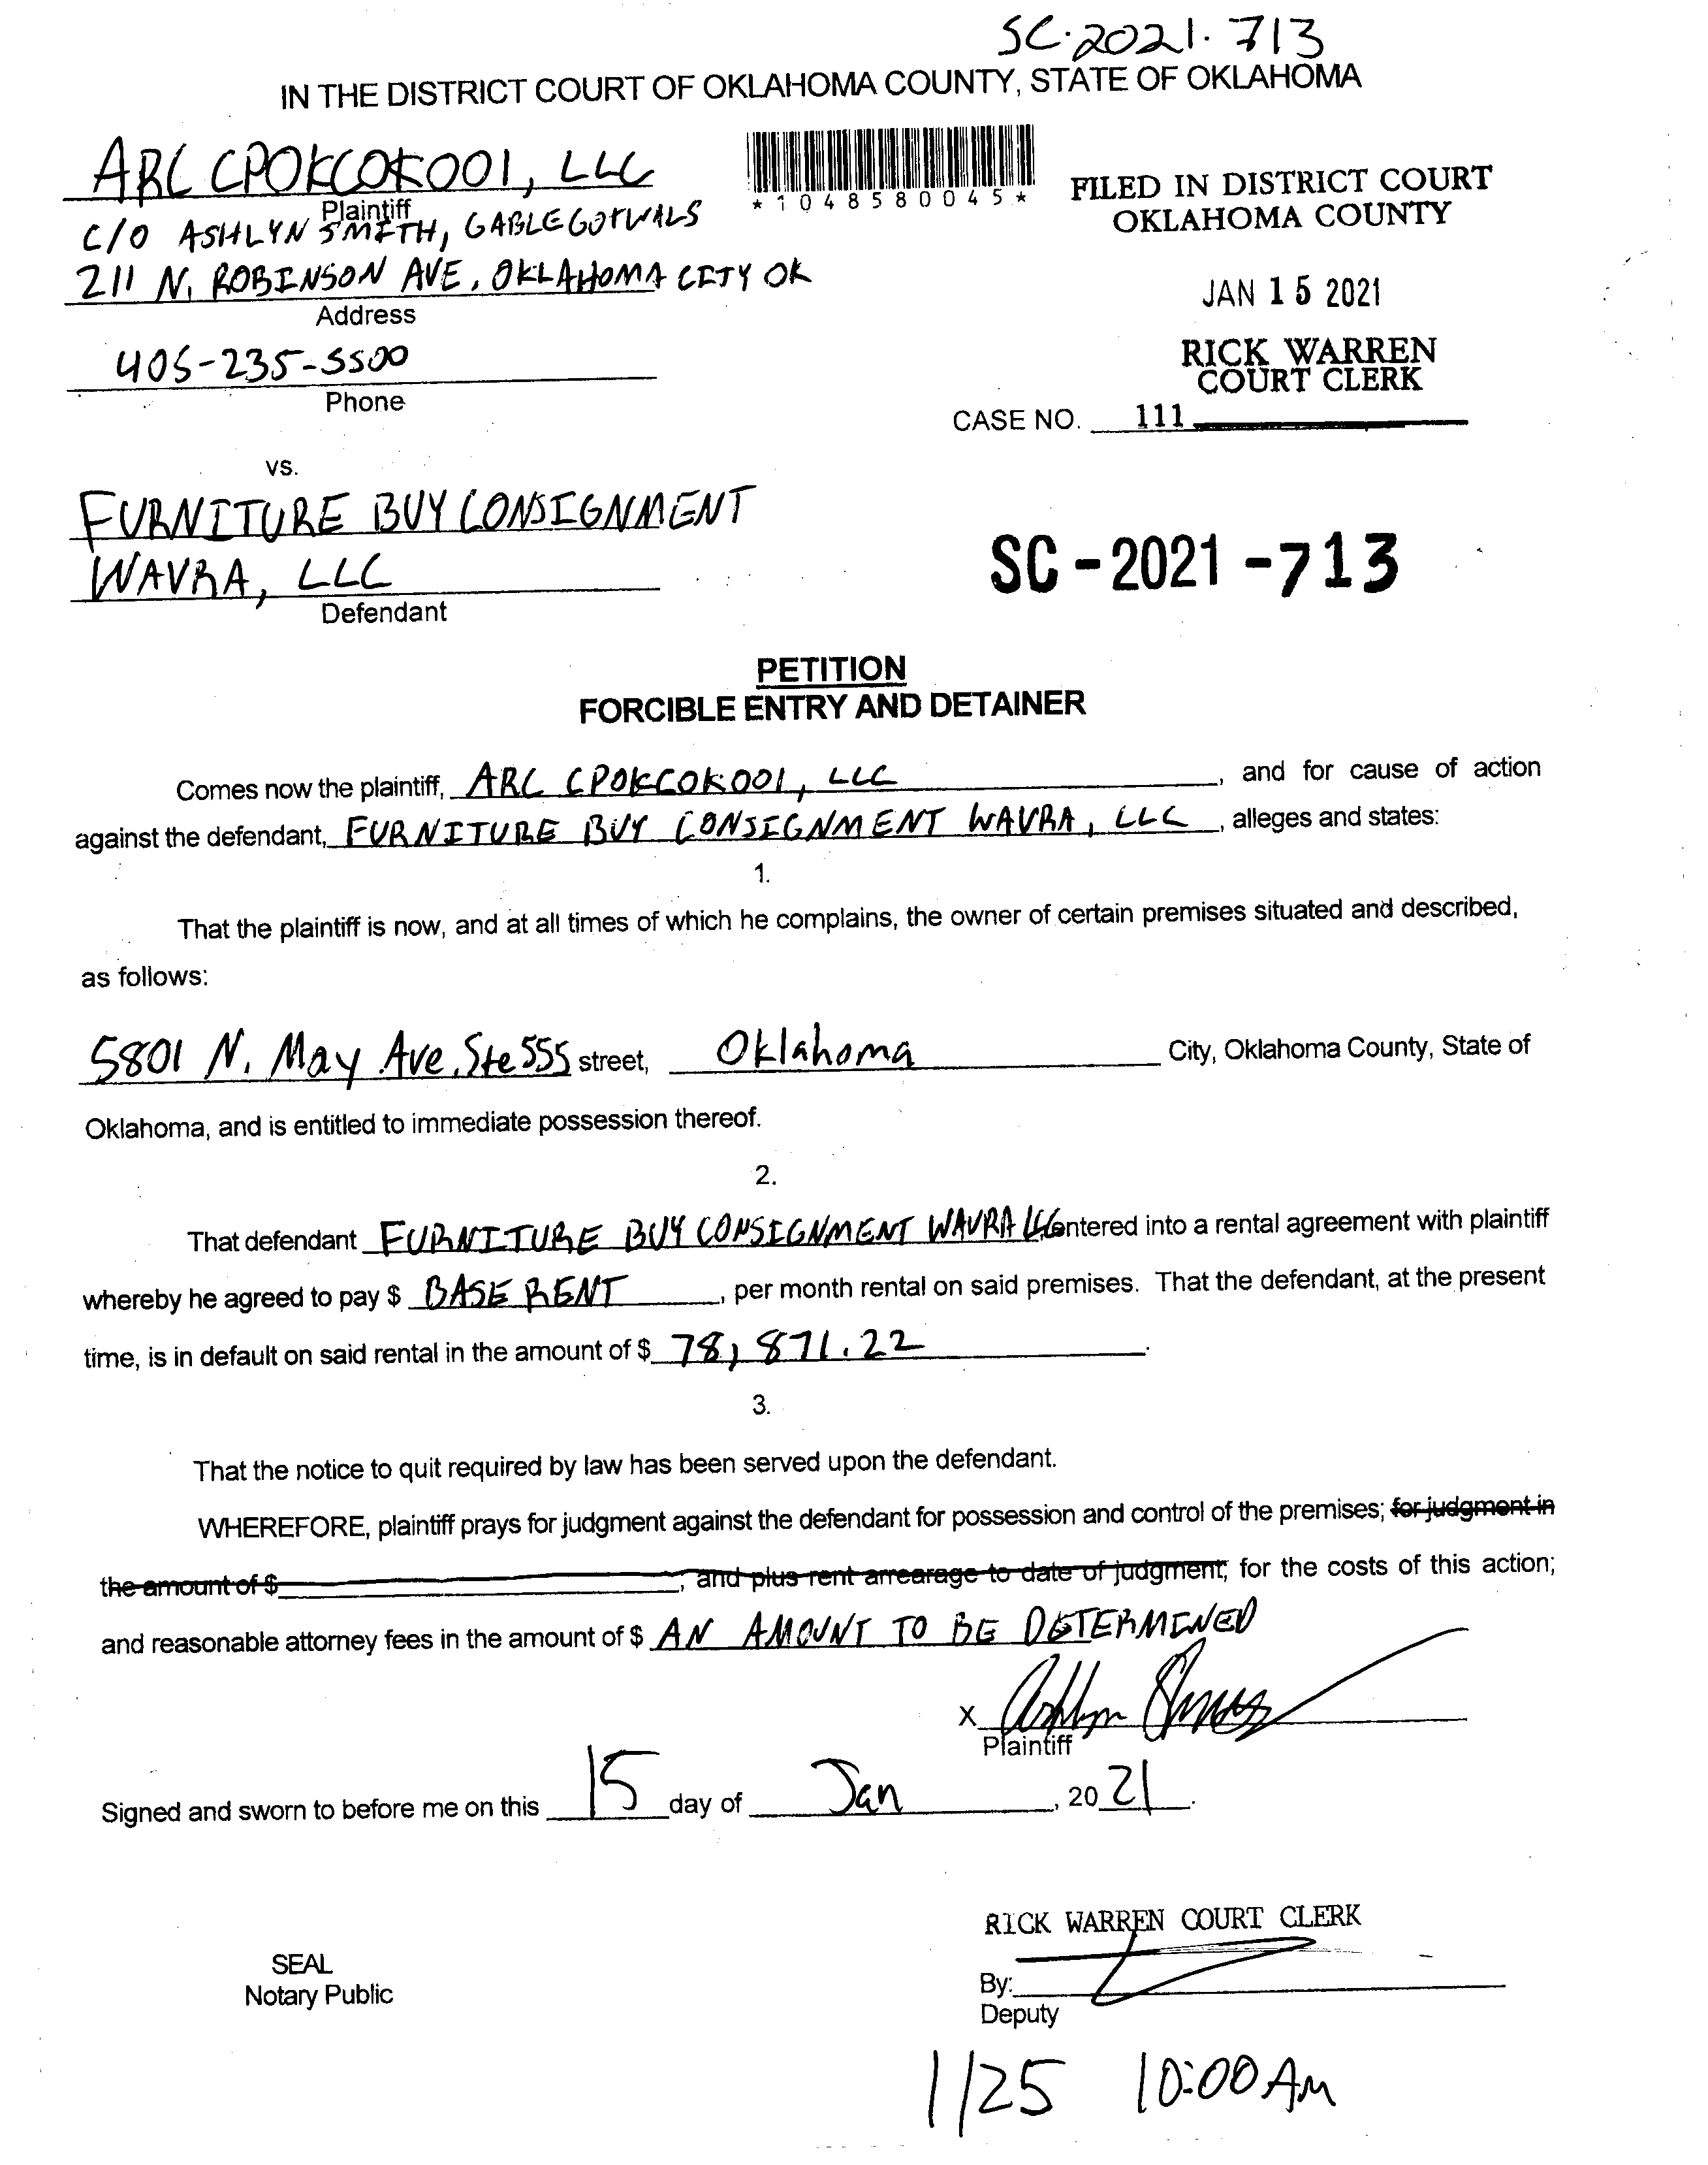 SC-2021-713
IN THE DISTRICT COURT OF OKLAHOMA COUNTY, STATE OF OKLAHOMA
ARC CPOKCOK001, LLC
Plaintiff
*1048580045*
FILED IN DISTRICT COURT
OKLAHOMA COUNTY
C/O ASHLYN SMITH, GABLEGOTWALS
211 N. ROBINSON AVE, OKLAHOMA CITY OK
Address
JAN 15 2021
405-235-5500
Phone
RICK WARREN
COURT CLERK
CASE NO. 111
vs.
FURNITURE BUY CONSIGNMENT
WAVRA, LLC
Defendant
SC-2021-713
PETITION
FORCIBLE ENTRY AND DETAINER
Comes now the plaintiff, ARC CPOKCOK001, LLC, and for cause of action
against the defendant, FURNITURE BUY CONSIGNMENT WAVRA, LLC, alleges and states:
1.
That the plaintiff is now, and at all times of which he complains, the owner of certain premises situated and described,
as follows:
5801 N. May Ave. Ste 555 street, Oklahoma City, Oklahoma County, State of
Oklahoma, and is entitled to immediate possession thereof.
2.
That defendant FURNITURE BUY CONSIGNMENT WAVRA LLC entered into a rental agreement with plaintiff
whereby he agreed to pay $ BASE RENT, per month rental on said premises. That the defendant, at the present
time, is in default on said rental in the amount of $ 78,871.22.
3.
That the notice to quit required by law has been served upon the defendant.
WHEREFORE, plaintiff prays for judgment against the defendant for possession and control of the premises; for judgment in
the amount of $, and plus rent arrearage to date of judgment; for the costs of this action;
and reasonable attorney fees in the amount of $ AN AMOUNT TO BE DETERMINED
X
Plaintiff
Signed and sworn to before me on this 15 day of Jan, 2021.
RICK WARREN COURT CLERK
SEAL
Notary Public
By:
Deputy
1/25 10:00 AM